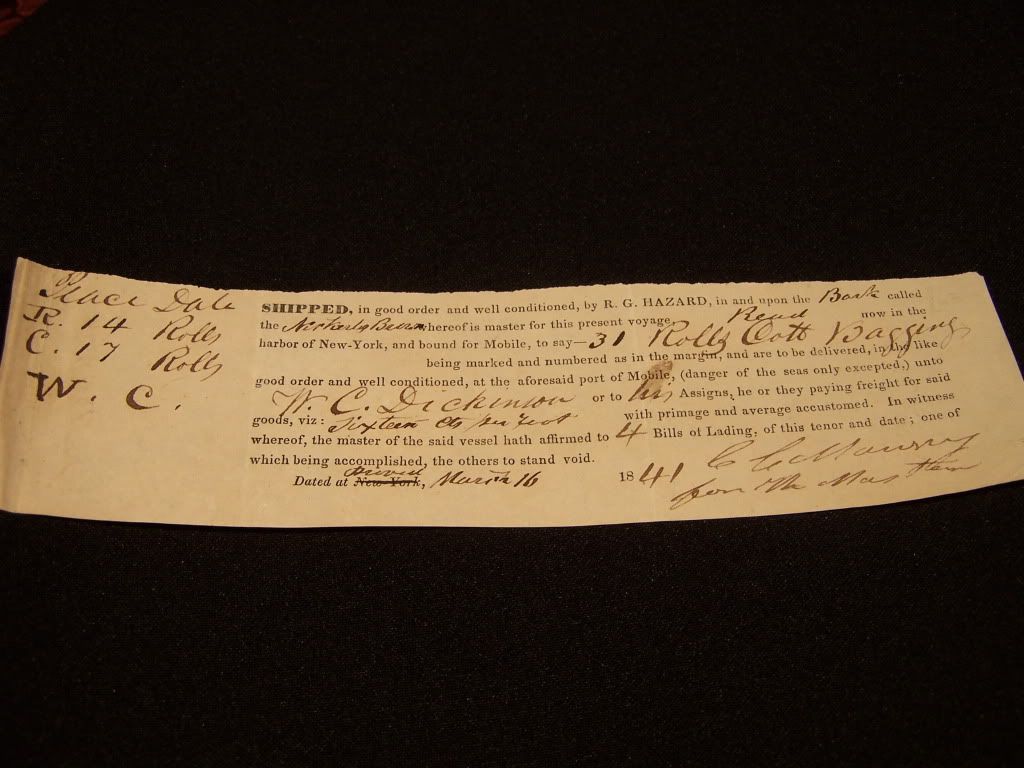 Peace Dale
R. 14 Rolls
C. 17 Rolls
W. C.
SHIPPED, in good order and well conditioned, by R. G. HAZARD, in and upon the Bark called
the Nicholas Brown whereof is master for this present voyage Read now in the
harbor of New-York, and bound for Mobile, to say—31 Rolls Cott Bagging
being marked and numbered as in the margin, and are to be delivered, in the like
good order and well conditioned, at the aforesaid port of Mobile, (danger of the seas only excepted,) unto
W. C. Dickinson or to his Assigns, he or they paying freight for said
goods, viz: Sixteen cts with primage and average accustomed. In witness
whereof, the master of the said vessel hath affirmed to 4 Bills of Lading, of this tenor and date; one of
which being accomplished, the others to stand void.
Dated at New-York, March 16 1841
for the Master